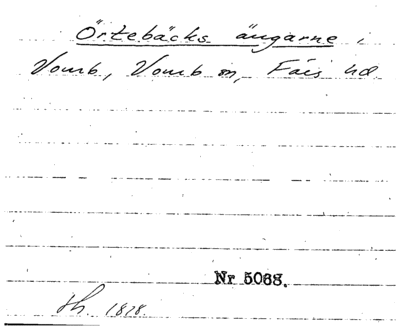 Örtebäcks ängarne i
Vomb, Vomb sn, Färs hd
Nr 5068.
th. 1818.